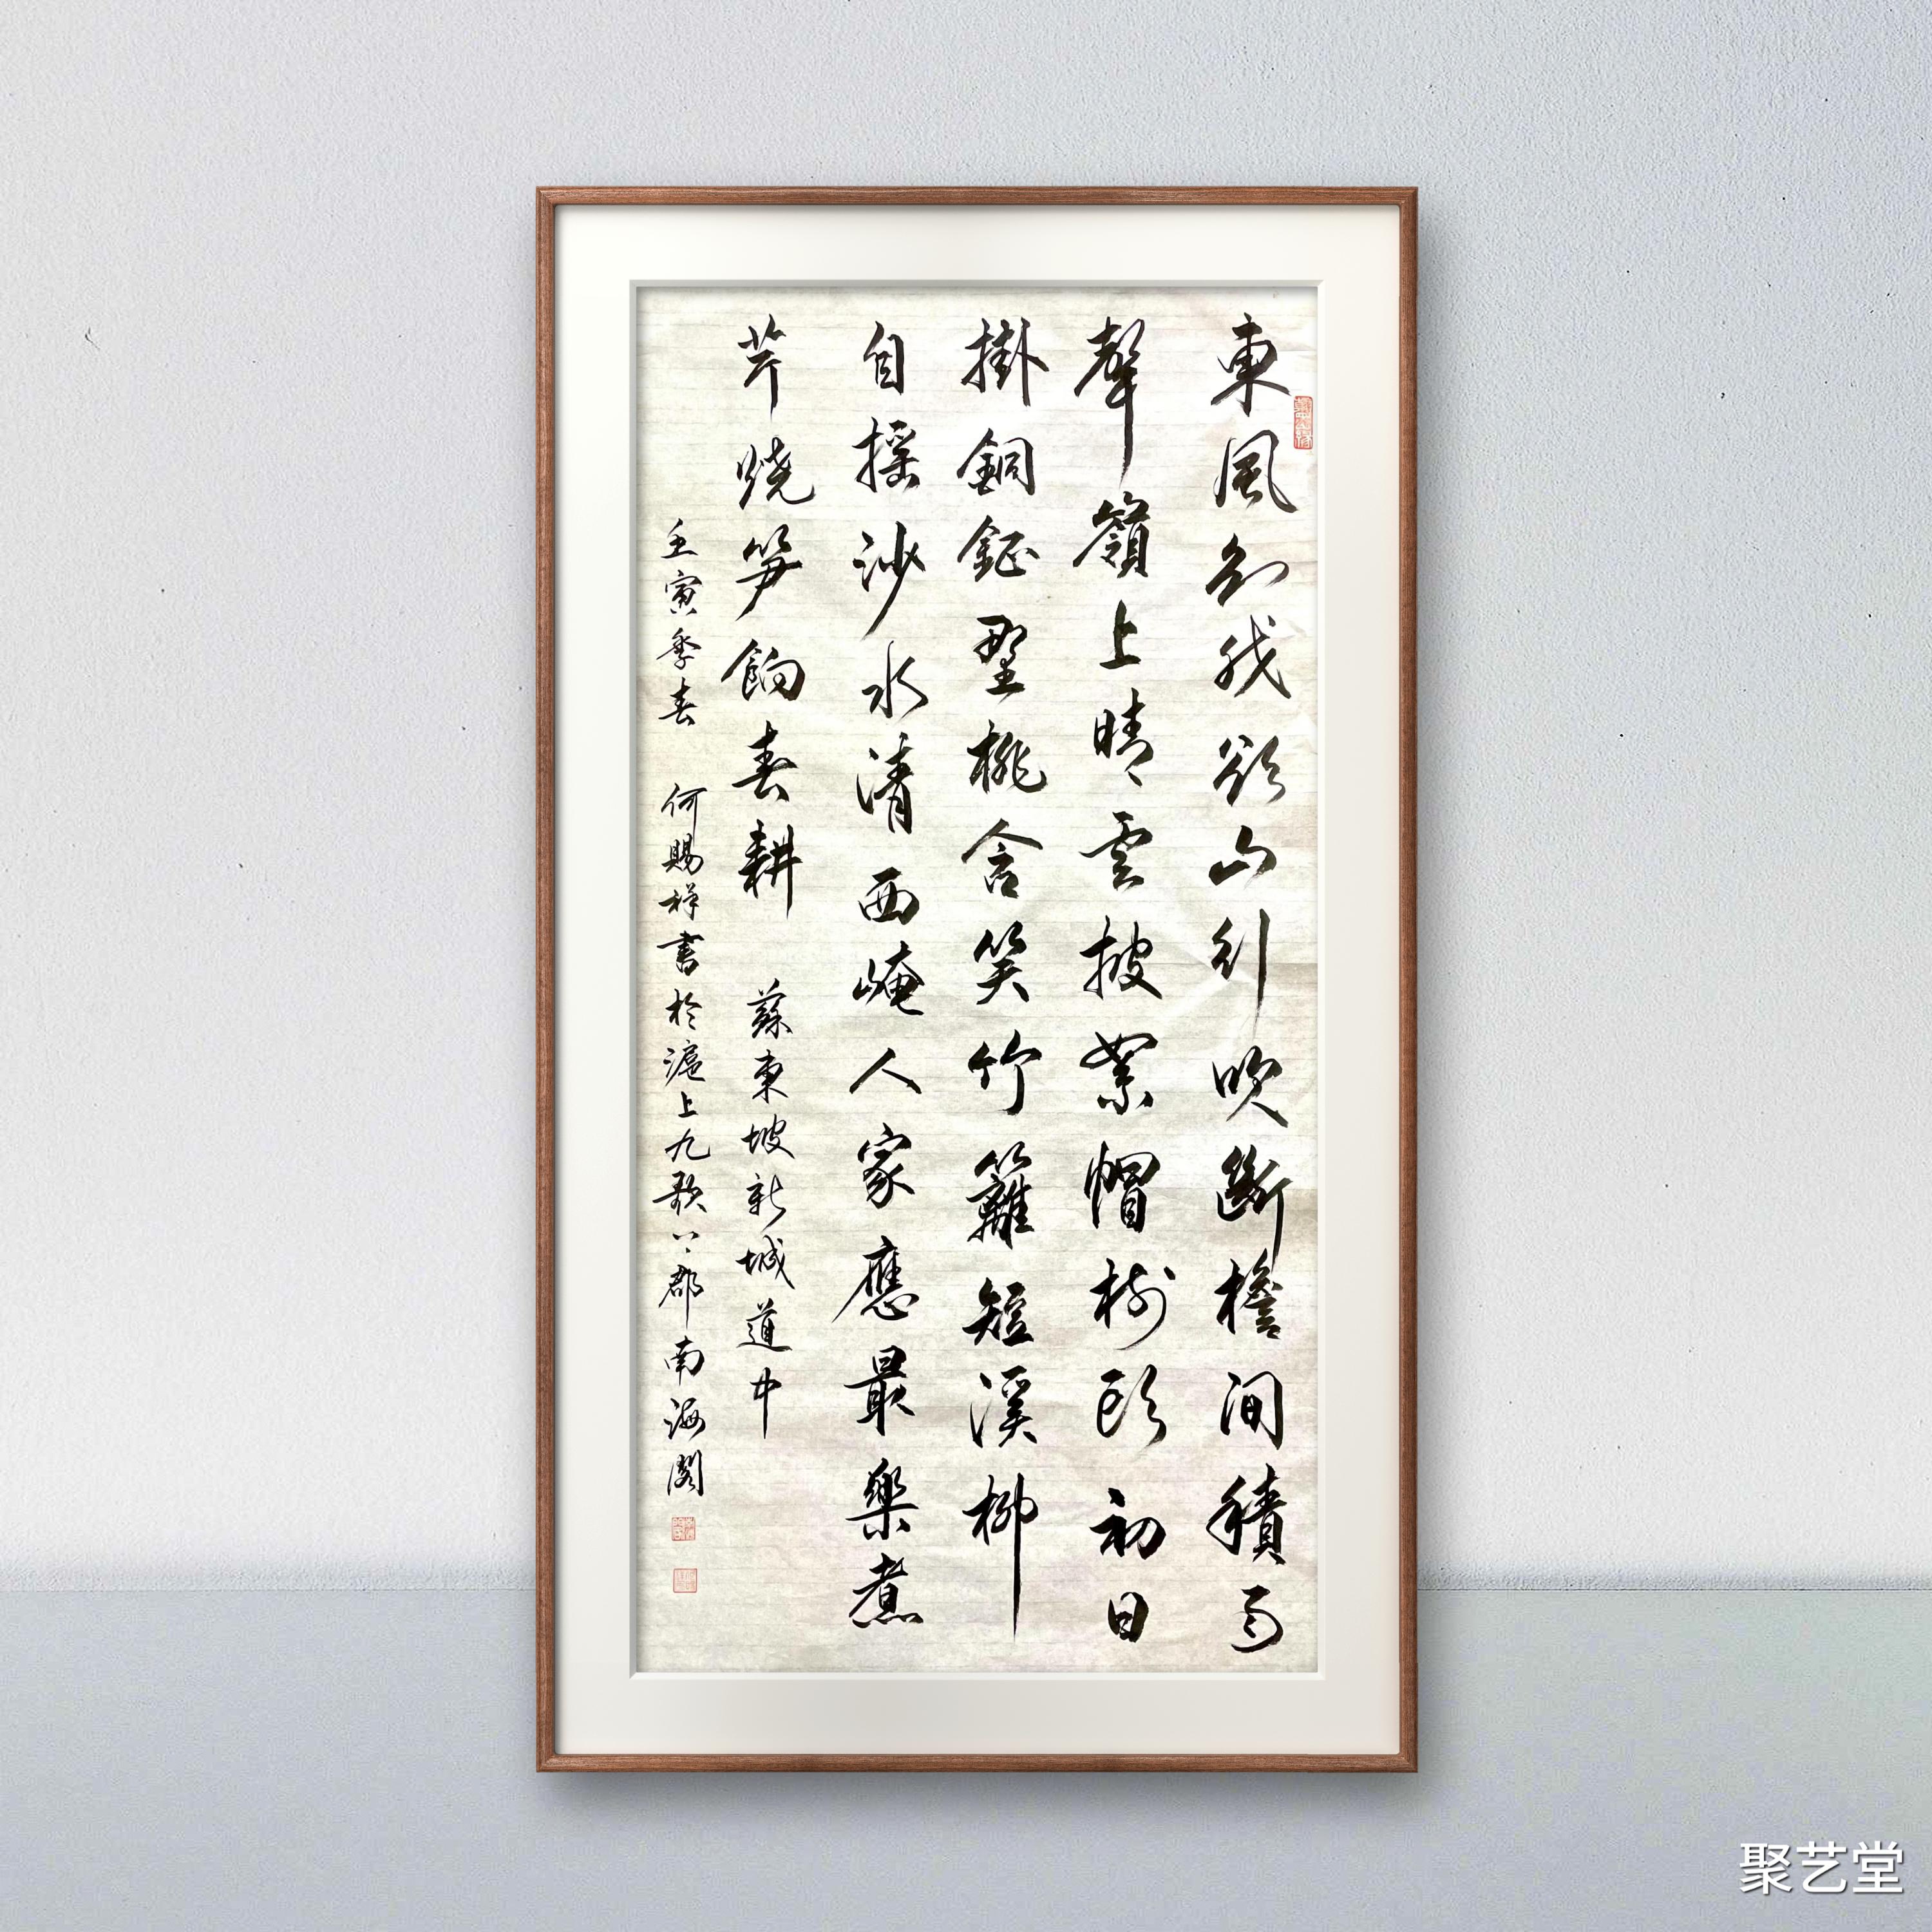 東風知我欲山行吹斷檐間積雨
聲嶺上晴雲披絮帽樹頭初日
掛銅鉦野桃含笑竹籬短溪柳
自搖沙水清西崦人家應最樂煮
芹燒笋餉春耕 蘇東坡新城道中
壬寅季春 何賜祥書於滬上九歌上郡南海閣
聚艺堂